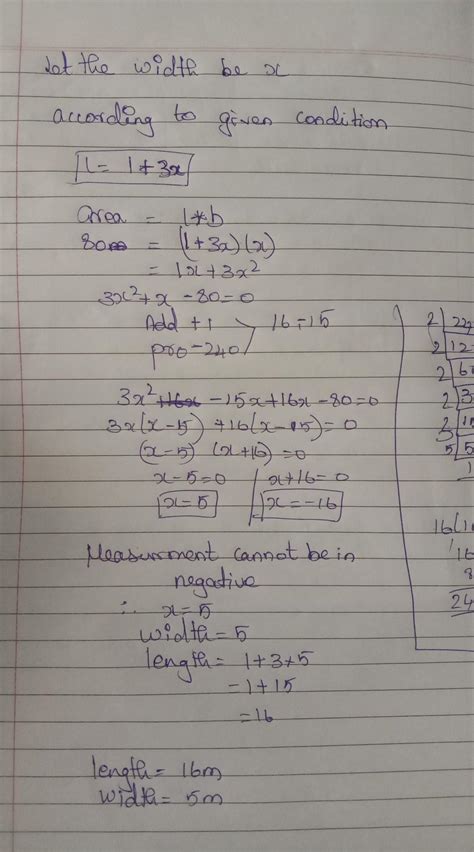 let the width be x
according to given condition
l = 1+3x
area = l*b
80m = (1+3x)(x)
= 1x+3x²
3x²+x-80=0
Add +1
pro-240
16-15
3x²+16x-15x+16x-80=0
3x(x-5)+16(x-5)=0
(x-5) (x+16)=0
x-5=0
x+16=0
x=5
x=-16
Measurment cannot be in
negative
∴ x=5
width=5
length= 1+3*5
=1+15
=16
length= 16m
width= 5m
2
2
2
2
2
5
16
16
8
24